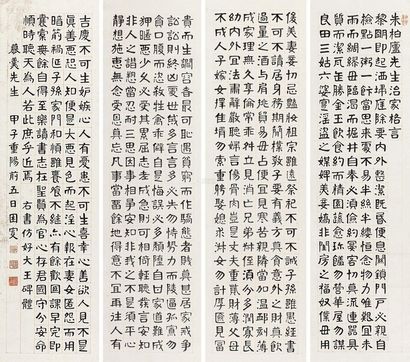 朱柏廬先生治家格言
黎明即起洒掃庭除要內外整潔既昏便息關鎖門戶必親自
檢點一粥一飯當思來處不易半絲半縷恒念物力維艱宜未
雨而綢繆毋臨渴而掘井自奉必須儉約宴客切勿流連器具
質而潔瓦缶勝金玉飲食約而精園蔬愈珍饈勿營華屋勿謀
良田三姑六婆實淫盜之媒婢美妾嬌非閨房之福奴僕毋用
俊美妻妾切忌豔妝祖宗雖遠祭祀不可不誠子孫雖愚經書
不可不讀居身務期質樸教子要有義方毋貪意外之財毋飲
過量之酒與肩挑貿易毋占便宜見窮苦親鄰當加溫恤刻薄
成家理無久享倫常乖舛立見消亡兄弟叔侄須分多潤寡長
幼內外宜法肅辭嚴聽婦言乖骨肉豈是丈夫重財薄父母
不成人子嫁女擇佳婿毋索重聘娶媳求淑女勿計厚奩見富
貴而生諂容者最可恥遇貧窮而作驕態者賤莫甚居家戒爭
訟訟則終凶處世戒多言言多必失勿恃勢力而凌逼孤寡勿貪
口腹而恣殺牲禽乖僻自是悔誤必多頹惰自甘家道難成
狎暱惡少久必受其累屈志老成急則可相倚輕聽發言安知
非人之譖愬當忍耐三思因事相爭安知非我之不是須平心
靜想施惠無念受恩莫忘凡事當留餘地得意不宜再往人有
吉慶不可生妒嫉心人有憂患不可生喜幸心善欲人見不是
真善惡恐人知便是大惡見色而起淫心報在妻女匿怨而用
暗箭禍延子孫家門和順雖饔飧不繼亦有餘歡國課早完即
囊橐無餘自得至樂讀書志在聖賢為官心存君國守分安命
順時聽天為人若此庶乎近焉 右書仿好大王碑體
先生 甲子重陽前五日